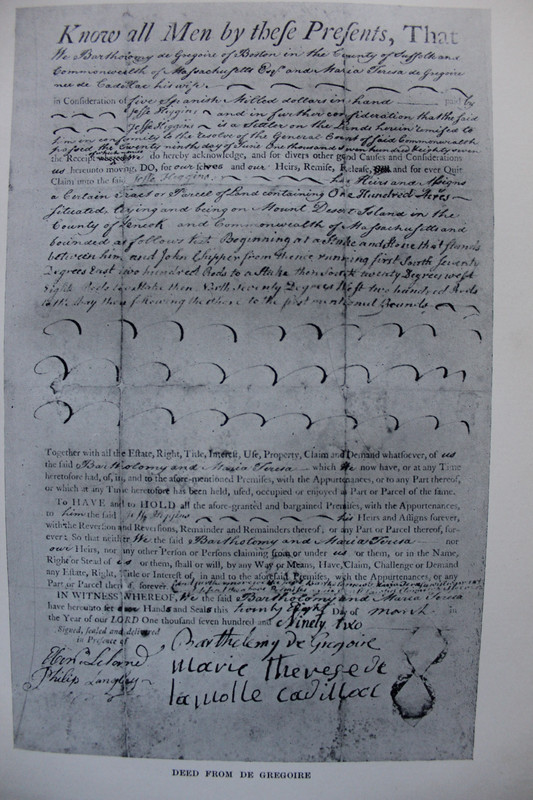 Know all Men by theſe Preſents, That
We Bartholomy de Gregoire of Boston in the County of Suffolk and
Commonwealth of Massachusetts Esqr. and Maria Teresa de Gregoire
nee de Cadillac his wife
in Consideration of five Spanish Milled dollars in hand paid by
Jesse Higgins and in further consideration that the said
Jesse Higgins is a settler on the Lands herein remised to
him in conformity to the resolve of the General Court of said Commonwealth
passed the twenty ninth day of June One thousand seven hundred Eighty seven
the Receipt do hereby acknowledge, and for divers other good Cauſes and Conſiderations
us hereunto moving, DO, for our ſelves and our Heirs, Remiſe, Releaſe, and for ever Quit
Claim unto the ſaid Jesse Higgins his Heirs and Aſſigns
a Certain Tract or Parcel of Land containing One Hundred Acres
Situated, Lying and being on Mount Desert Island in the
County of and Commonwealth of Massachusetts and
bounded as follows Beginning at a Stake and Stone that stands
between him and John from thence running first South Seventy
Degrees East two hundred Rods to a Stake then South twenty Degrees west
Eight Rods to a Stake then North Seventy Degrees West two hundred Rods
to the to the first mentional Bounds
Together with all the Eſtate, Right, Title, Intereſt, Uſe, Property, Claim and Demand whatſoever, of us
the ſaid Bartholomy and Maria Teresa which We now have, or at any Time
heretofore had, of, in, and to the afore-mentioned Premiſes, with the Appurtenances, or to any Part thereof,
or which at any Time heretofore has been held, uſed, occupied or enjoyed as Part or Parcel of the ſame.
To HAVE and to HOLD all the afore-granted and bargained Premiſes, with the Appurtenances,
to him the ſaid Higgins his Heirs and Aſſigns forever,
with the Reverſion and Reverſions, Remainder and Remainders thereof, or any Part or Parcel thereof, for-
ever: So that neither We the ſaid Bartholomy and Maria Teresa nor
our Heirs, nor any other Perſon or Perſons claiming from or under us or them, or in the Name,
Right or Stead of us or them, ſhall or will, by any Way or Means, Have, Claim, Challenge or Demand
any Eſtate, Right, Title or Intereſt of, in and to the aforeſaid Premiſes, with the Appurtenances, or any
Part or Parcel thereof forever
IN WITNESS WHEREOF, We the ſaid Bartholomy and Maria Teresa
have hereunto ſet our Hands and Seals this twenty Eight Day of march in
the Year of our LORD One thouſand ſeven hundred and Ninety two
Signed, ſealed and delivered
in Preſence of
Barthelemy de Gregoire
marie therese de
lamotte Cadillac
Philip Langley
DEED FROM DE GREGOIRE